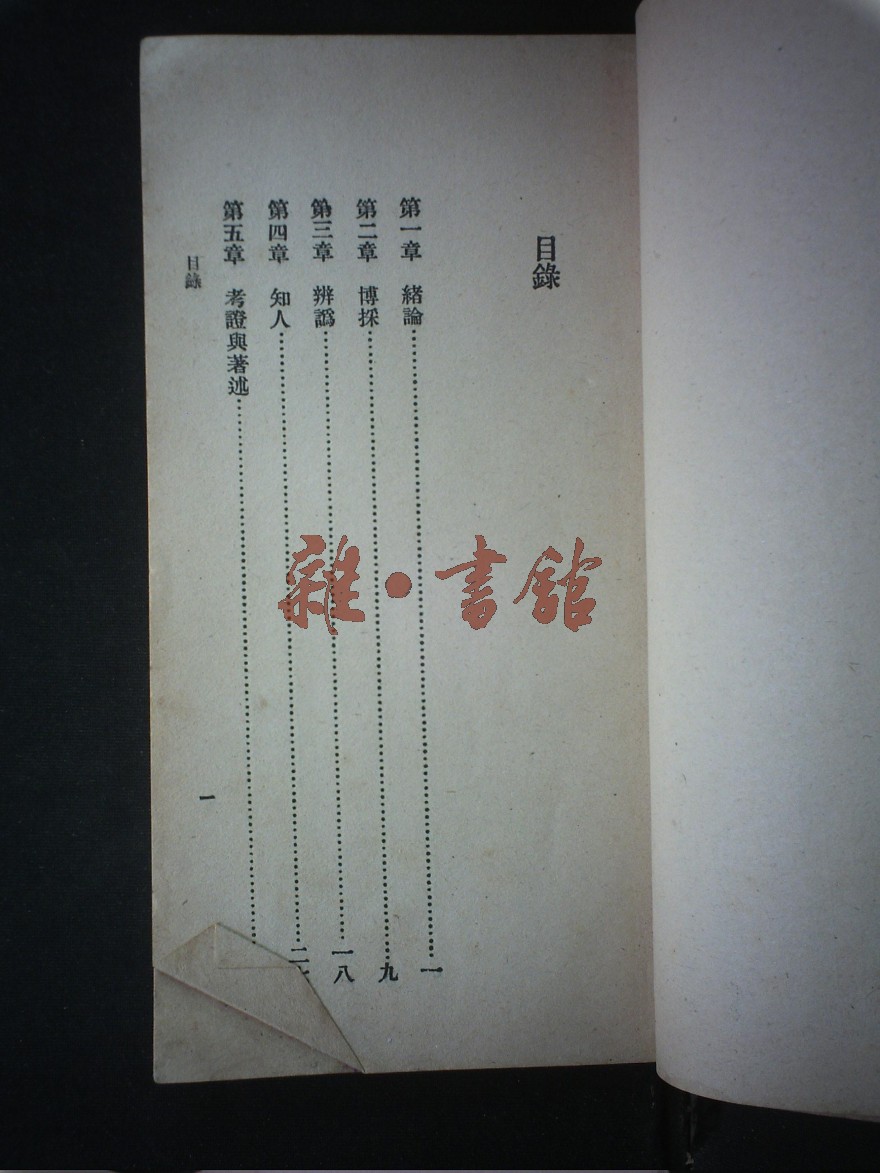 目錄
第一章 緒論……………一
第二章 博採……………九
第三章 辨譌……………一八
第四章 知人……………二
第五章 考證與著述……………
目錄
一
雜·書館